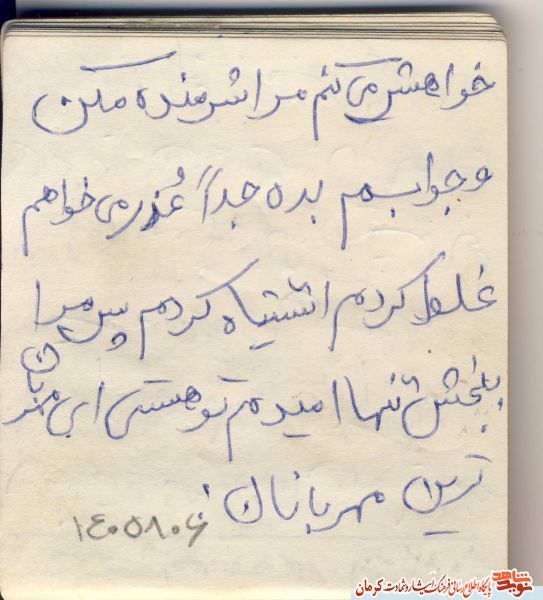 خواهش می کنم مرا شرمنده مکن
و جوابم بده جداً عُذر می خواهم
غلط کردم اشتباه کردم پس مرا
ببخش تنها امیدم تو هستی ای مهربان
ترین مهربانان.
نوید شاهد
پایگاه اطلاع رسانی فرهنگ ایثار و شهادت کرمان